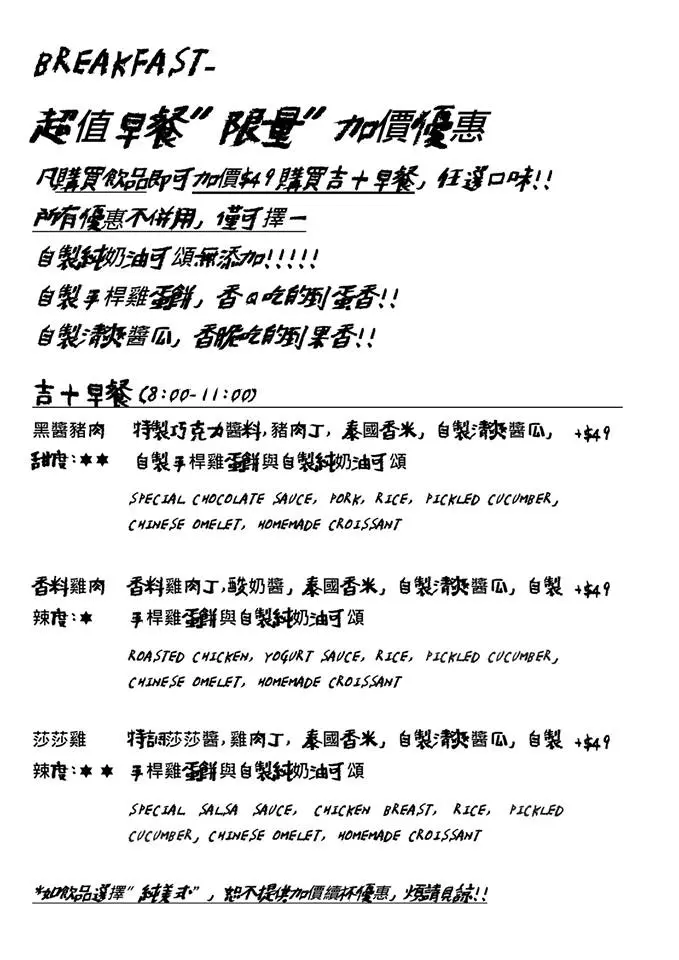 BREAKFAST-
超值早餐"限量"加價優惠
凡購買飲品即可加價$49購買吉十早餐, 任選口味!!
所有優惠不併用, 僅可擇一
自製純奶油可頌無添加!!!!!
自製手桿雞蛋餅, 香Q吃的到蛋香!!
自製清爽醬瓜, 香脆吃的到果香!!
吉十早餐 (8:00-11:00)
黑醬豬肉 特製巧克力醬料, 豬肉丁, 泰國香米, 自製清爽醬瓜, +$49
甜度:★★ 自製手桿雞蛋餅與自製純奶油可頌
SPECIAL CHOCOLATE SAUCE, PORK, RICE, PICKLED CUCUMBER,
CHINESE OMELET, HOMEMADE CROISSANT
香料雞肉 香料雞肉丁, 酸奶醬, 泰國香米, 自製清爽醬瓜, 自製 +$49
辣度:★ 手桿雞蛋餅與自製純奶油可頌
ROASTED CHICKEN, YOGURT SAUCE, RICE, PICKLED CUCUMBER,
CHINESE OMELET, HOMEMADE CROISSANT
莎莎雞 特調莎莎醬, 雞肉丁, 泰國香米, 自製清爽醬瓜, 自製 +$49
辣度:★★ 手桿雞蛋餅與自製純奶油可頌
SPECIAL SALSA SAUCE, CHICKEN BREAST, RICE, PICKLED
CUCUMBER, CHINESE OMELET, HOMEMADE CROISSANT
*如飲品選擇"純美式", 恕不提供加價續杯優惠, 煩請見諒!!